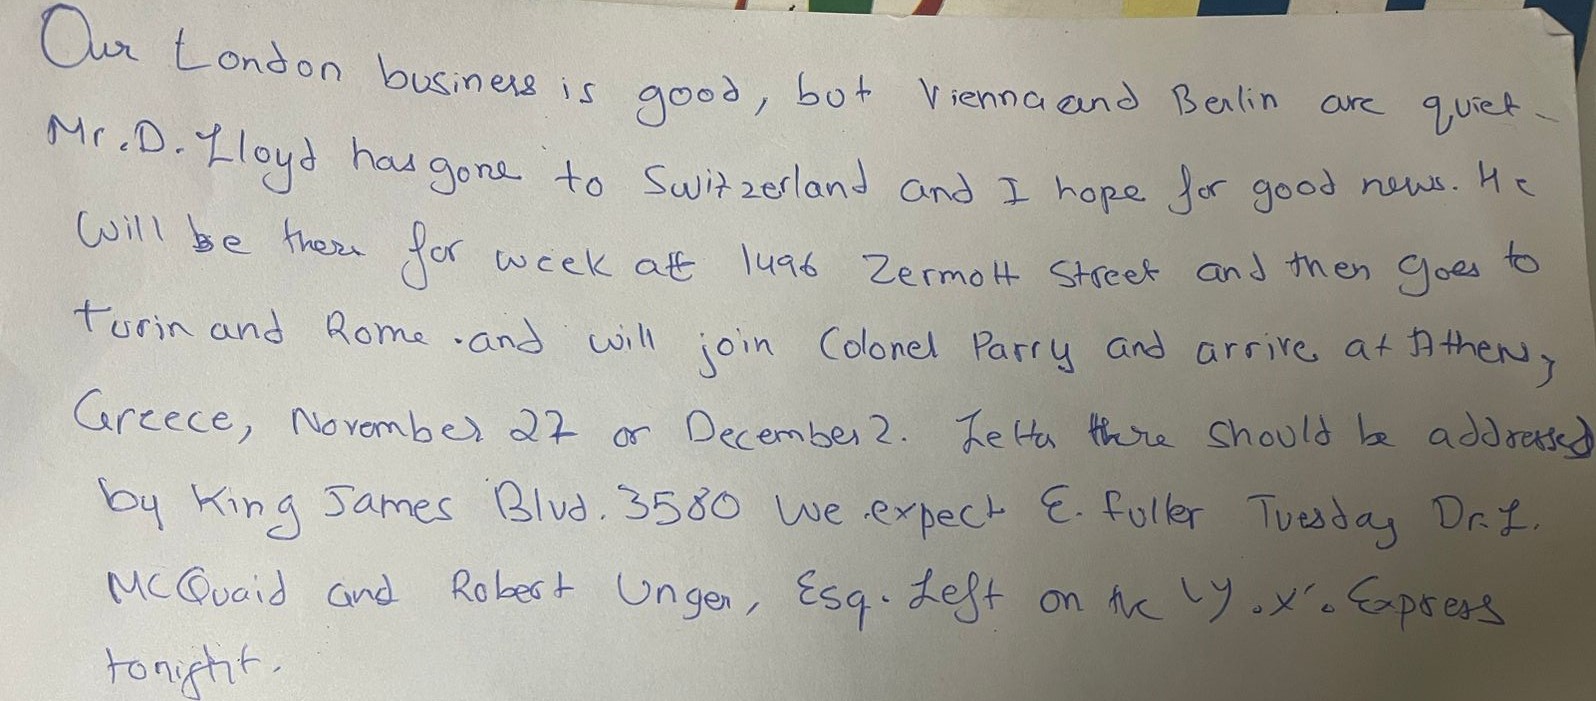 Our London business is good, but Vienna and Berlin are quiet.
Mr. D. Lloyd has gone to Switzerland and I hope for good news. He
will be there for week att 1496 Zermott Street and then goes to
turin and Rome .and will join Colonel Parry and arrive at Athens,
Greece, November 27 or December 2. Letta there should be addressed
by King James Blvd. 3580 We expect E. fuller Tuesday Dr. L.
McQuaid and Robert Unger, Esq. Left on the Y.X. Express
tonight.